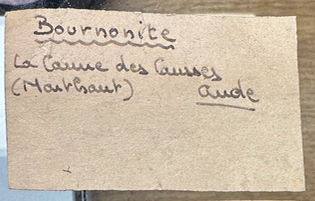 Bournonite
La Caune des Causses
(Monthaut) Aude